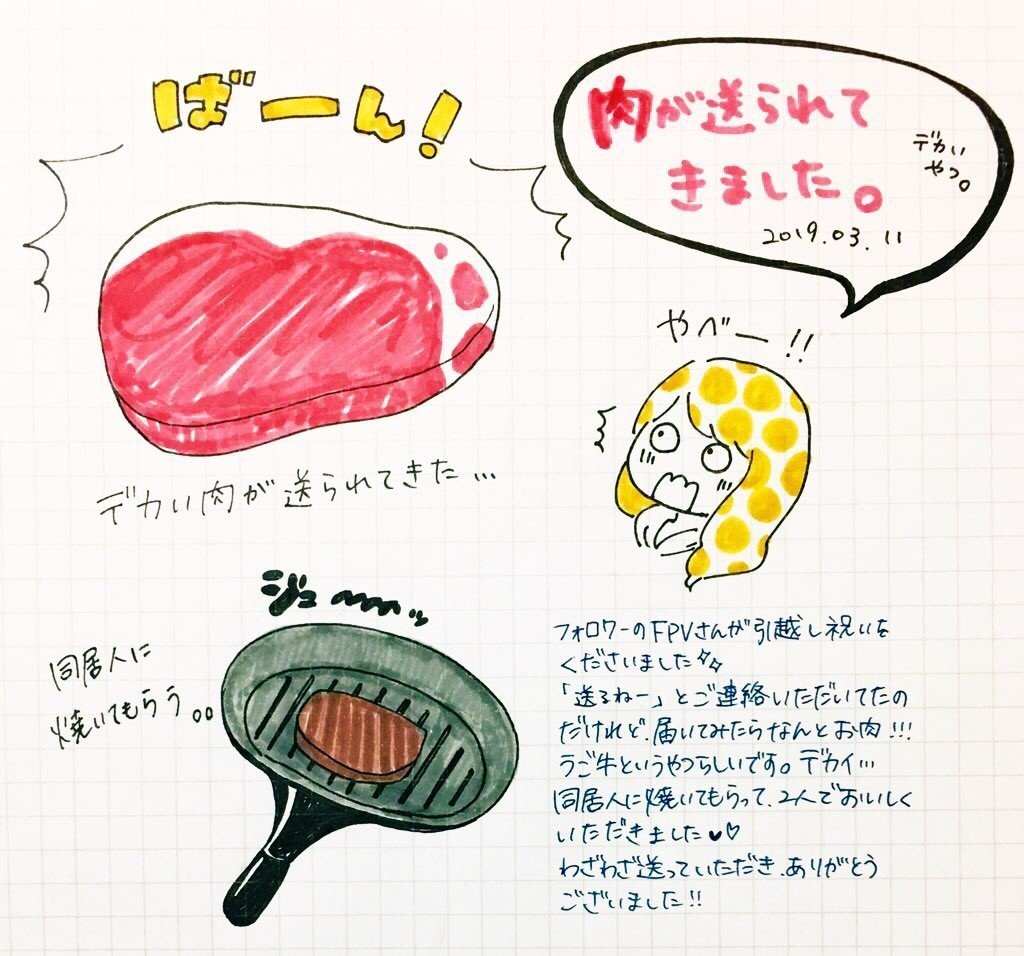 ばーん!
肉が送られて
きました。
デカい
やつ。
2019.03.11
やべー!!
デカい肉が送られてきた…
ジューーーッ
同居人に
焼いてもらう。。
フォロワーのFPVさんが引越し祝いを
くださいました
「送るねー」とご連絡いただいてたの
だけれど、届いてみたらなんとお肉!!!
うご牛というやつらしいです。デカイ…
同居人に焼いてもらって、2人でおいしく
いただきました♥♡
わざわざ送っていただき、ありがとう
ございました!!